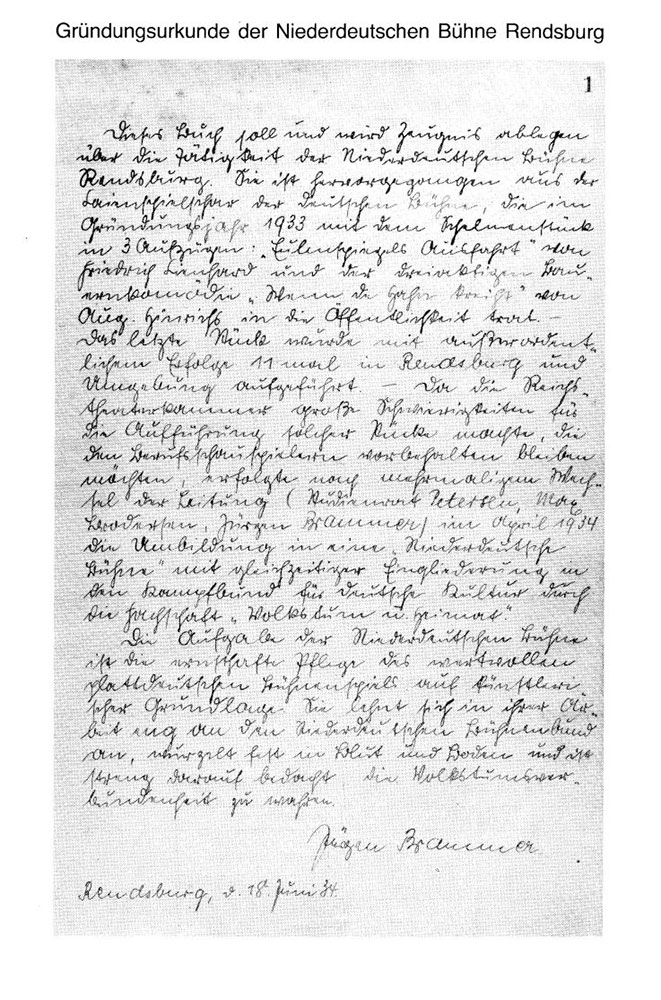 Gründungsurkunde der Niederdeutschen Bühne Rendsburg
1
Dieses Buch soll und wird Zeugnis ablegen
über die Tätigkeit der Niederdeutschen Bühne
Rendsburg. Sie ist hervorgegangen aus der
Laienspielschar der Deutschen Bühne, die im
Gründungsjahr 1933 mit dem Schelmenstück
in 3 Aufzügen: „Eulenspiegels Ausfahrt" von
Friedrich Lienhard und der dreiaktigen Bau-
ernkomödie „Wenn de Hahn kreiht" von
Aug. Hinrichs in die Öffentlichkeit trat. –
Das letzte Stück wurde mit außerordent-
lichem Erfolge 11 mal in Rendsburg und
Umgebung aufgeführt – Da die Reichs-
theaterkammer große Schwierigkeiten für
die Aufführung solcher Stücke machte, die
den Berufsschauspielern vorbehalten bleiben
möchten, erfolgte nach mehrmaligem Wech-
sel der Leitung (Studienrat Petersen, Max
Brodersen, Jürgen Brammer) im April 1934
die Umbildung in eine „Niederdeutsche
Bühne" mit gleichzeitiger Eingliederung in
den Kampfbund für deutsche Kultur durch
die Fachschaft „Volkstum u. Heimat."
Die Aufgabe der Niederdeutschen Bühne
ist die ernsthafte Pflege des wertvollen
plattdeutschen Bühnenspiels auf künstleri-
scher Grundlage. Sie lehnt sich in ihrer Ar-
beit eng an den Niederdeutschen Bühnenbund
an, wurzelt fest in Blut und Boden und ist
streng darauf bedacht die Volkstumsver-
bundenheit zu wahren.
Jürgen Brammer
Rendsburg, d. 18t Juni 34